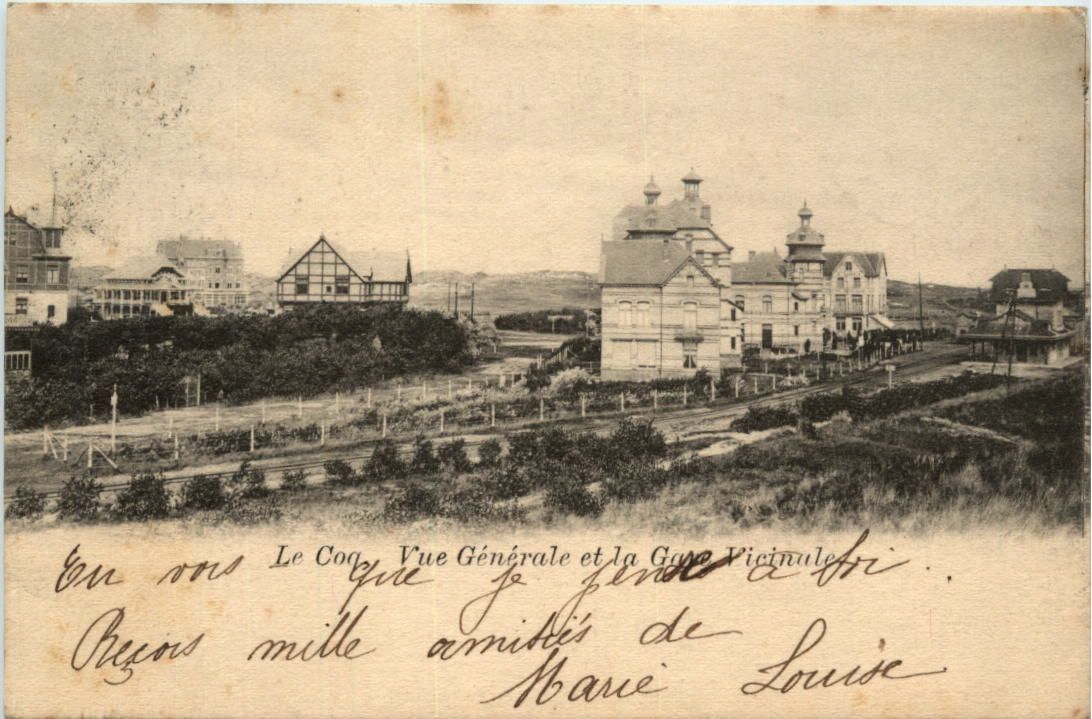 Le Coq. Vue Générale et la Gare Vicinale
Tu vois que je pense à toi.
Reçois mille amitiés de
Marie Louise